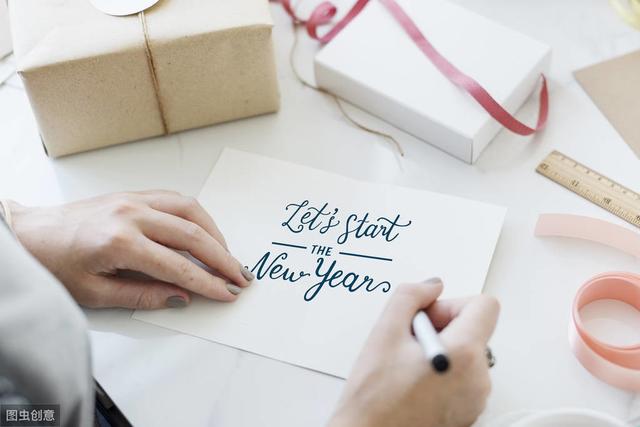 Let's Start
THE
New Year
图虫创意